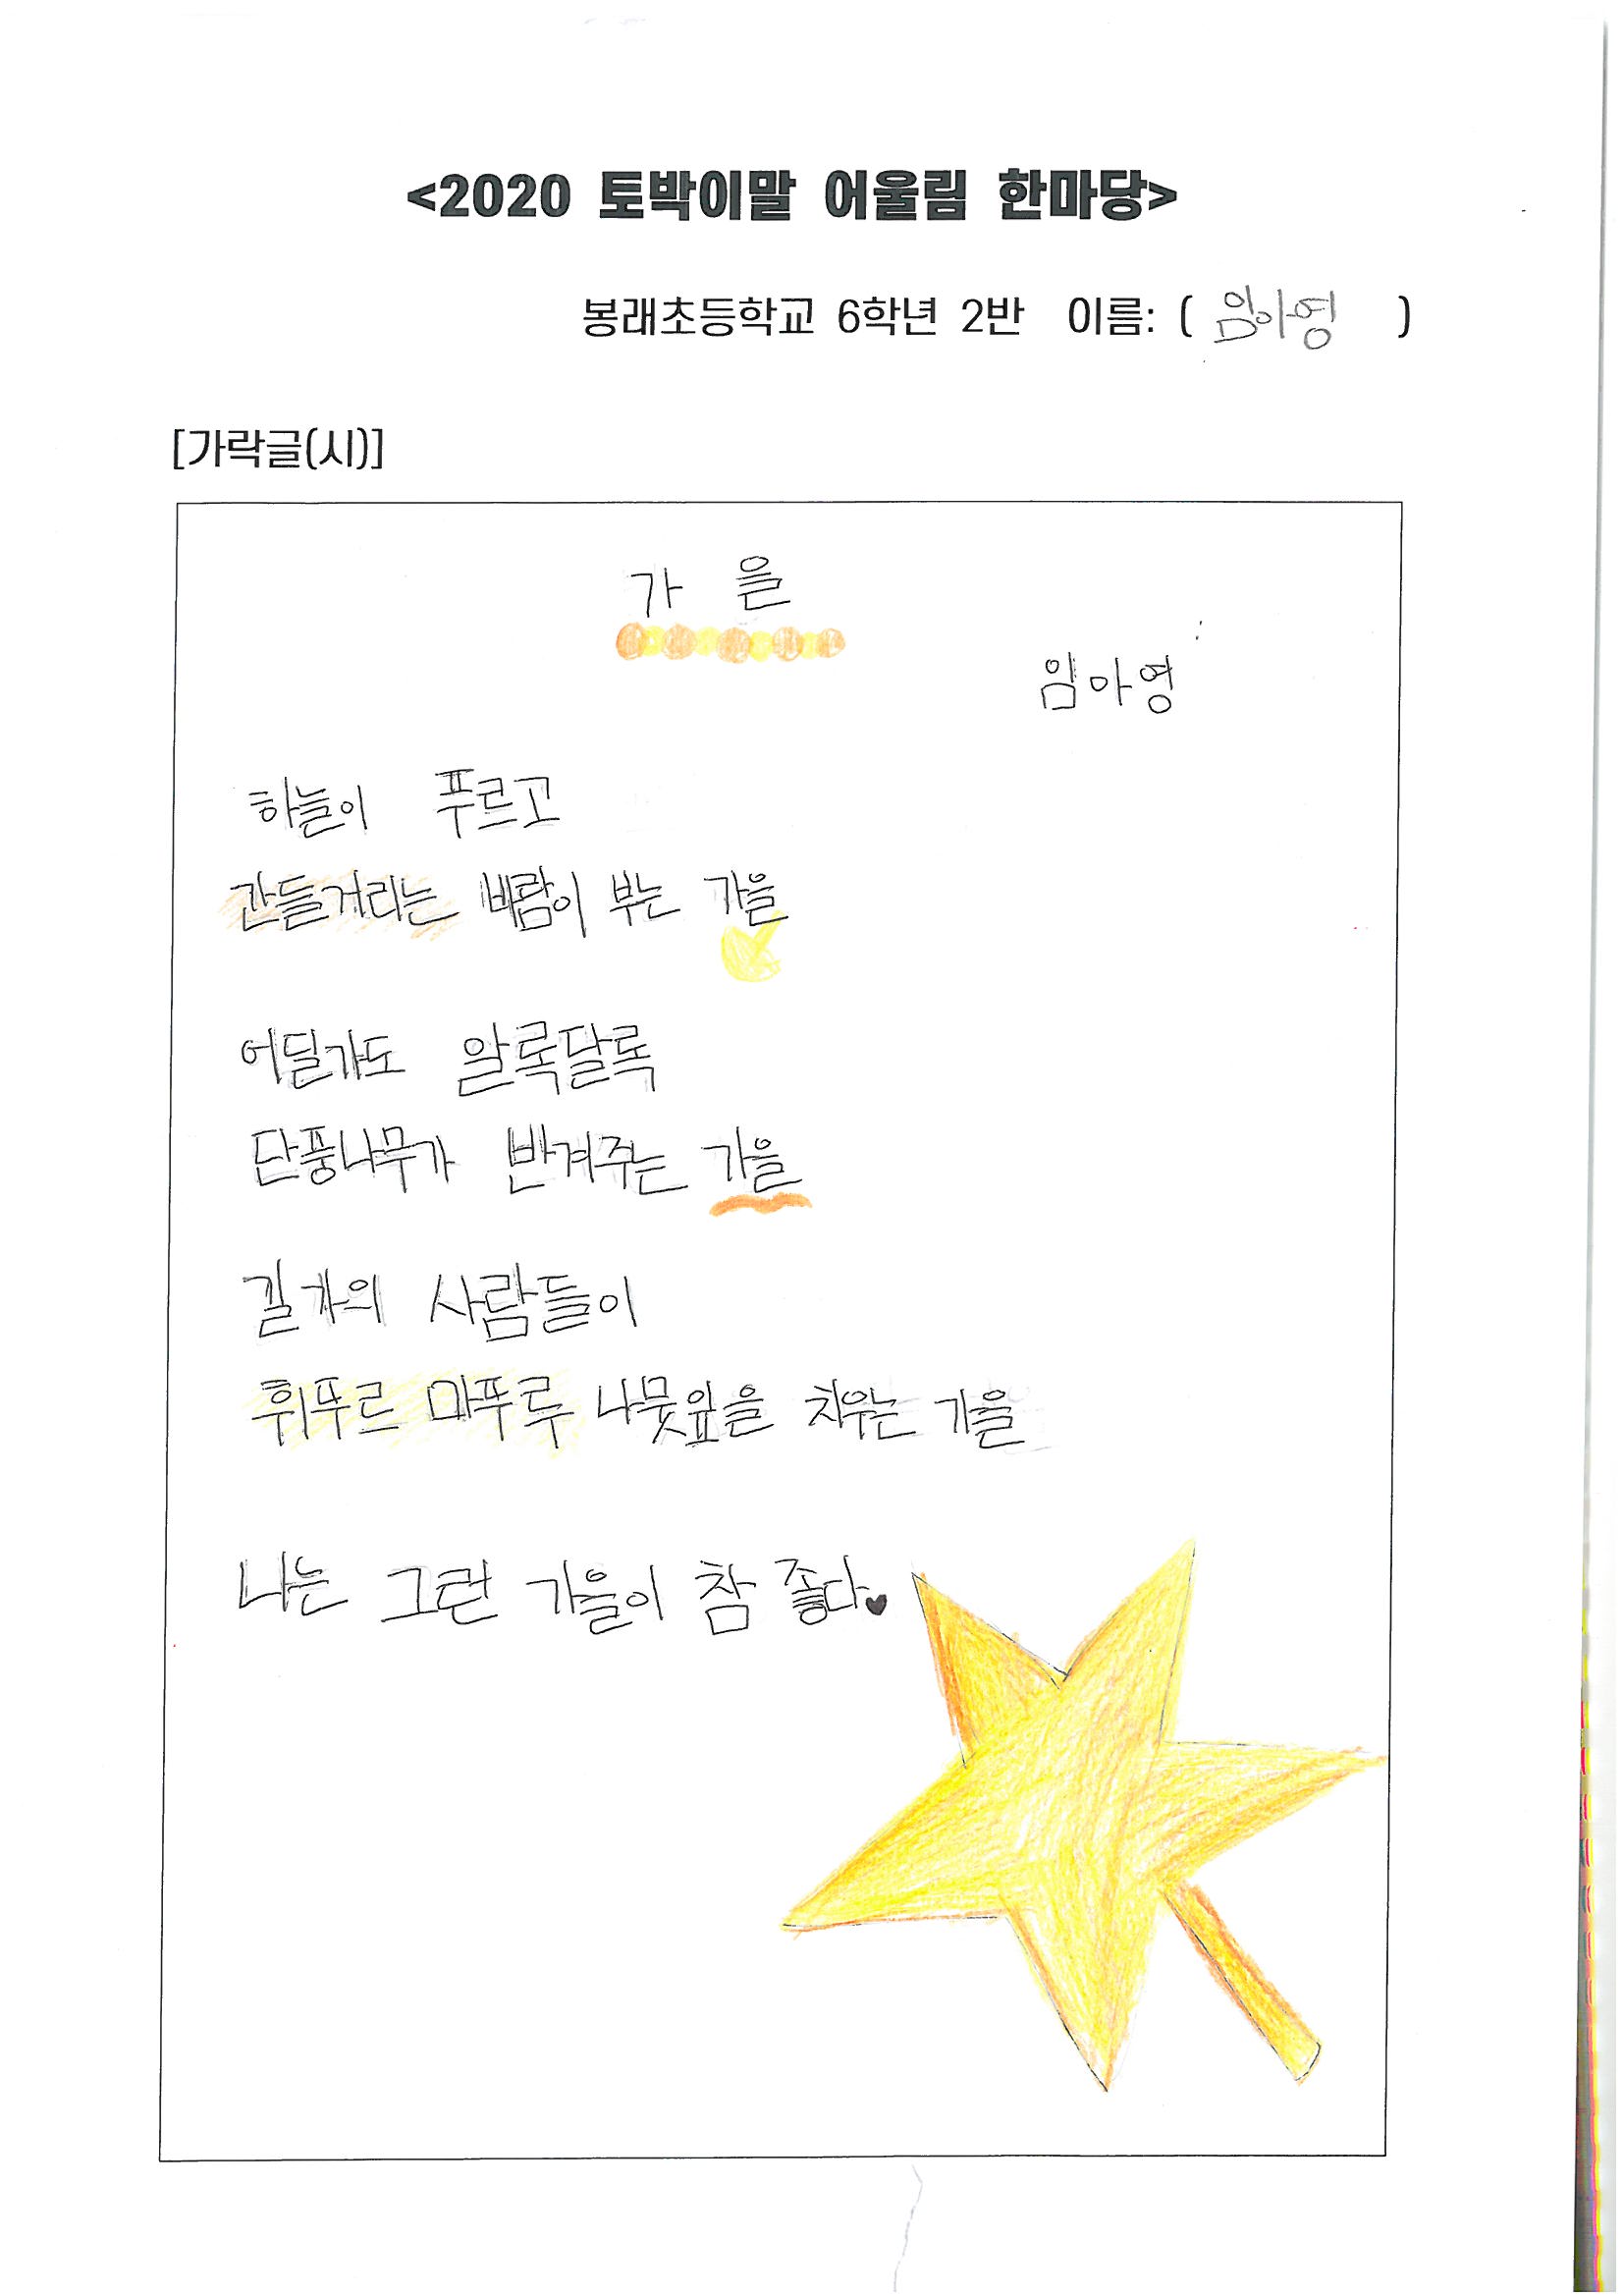 <2020 토박이말 어울림 한마당>
봉래초등학교 6학년 2반 이름: ( 임아영 )
[가락글(시)]
가 을
임아영
하늘이 푸르고
간들거리는 바람이 부는 가을
어딜가도 알록달록
단풍나무가 반겨주는 가을
길가의 사람들이
휘뚜르 마뚜루 나뭇잎을 치우는 가을
나는 그런 가을이 참 좋다♥